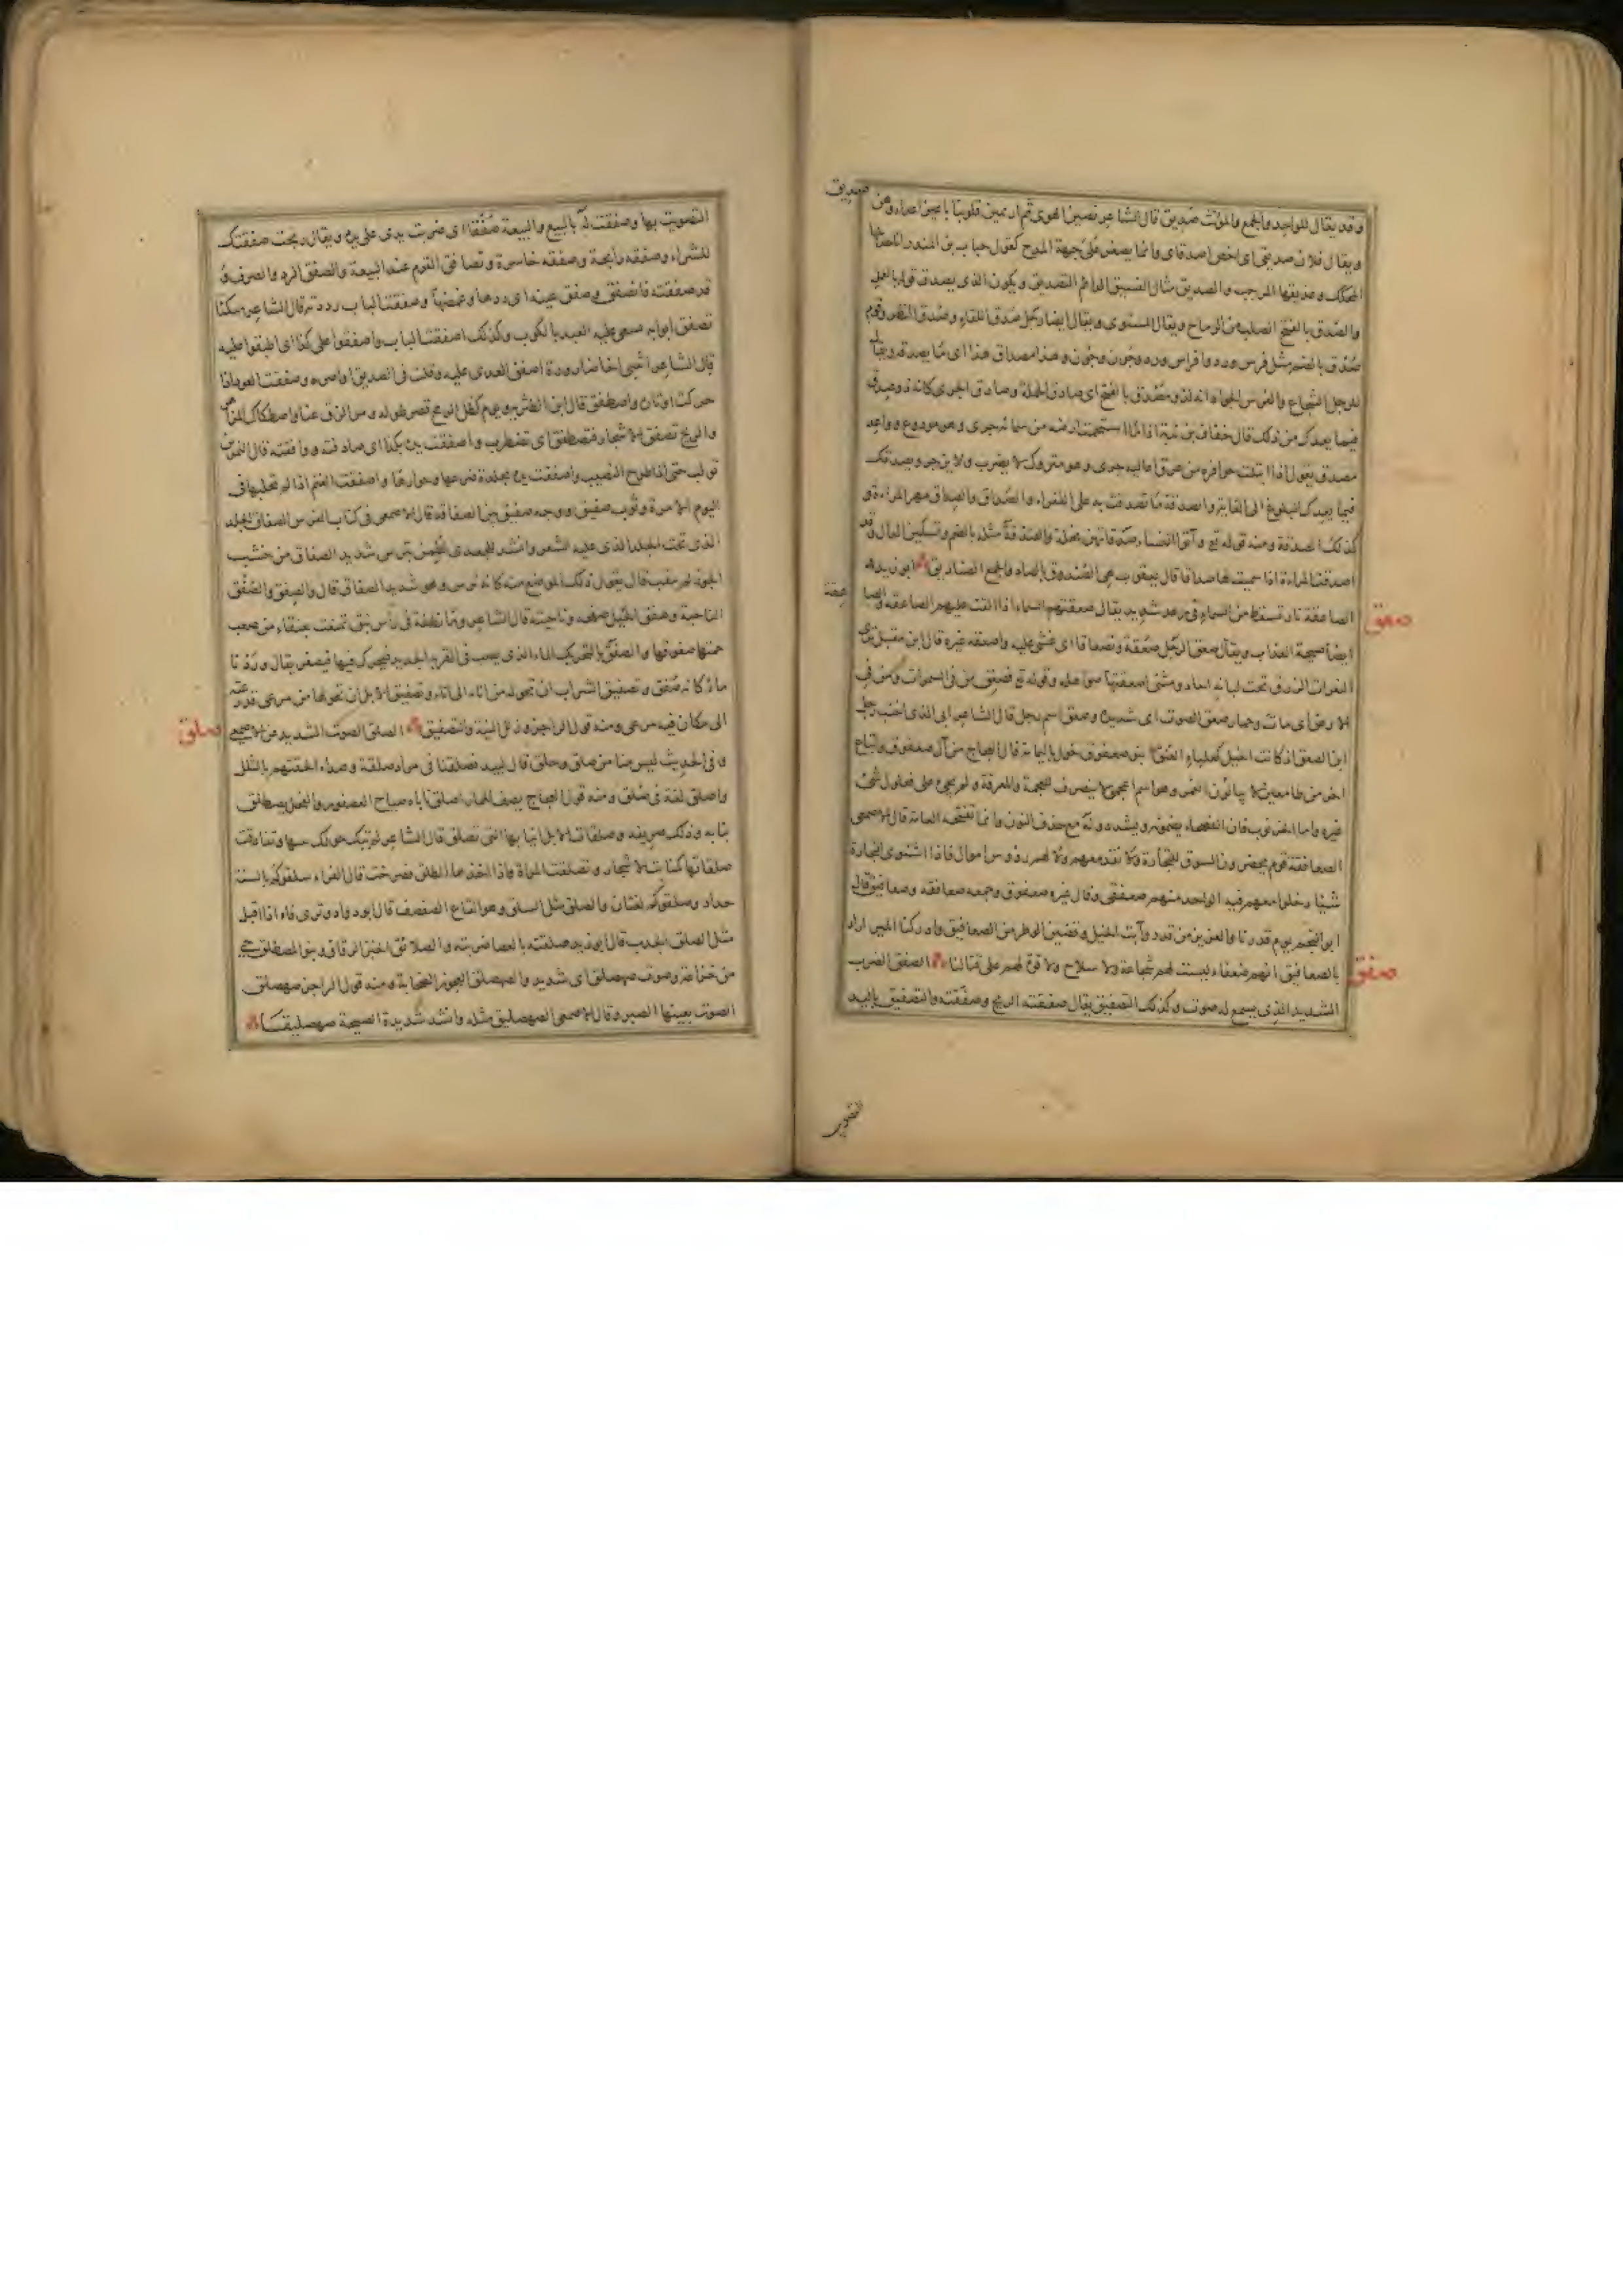 صديق
وقد يقال للواحد والجمع والمؤنث صديق قال الشاعر نصبن الهوى ثم ارتمين قلوبنا باعين اعداء وهن
ويقال فلان صديقى اى اخص اصدقاى وانما يصغر على جهة المدح كقول حباب بن المنذر انا جذيلها
المحكك وعذيقها المرجب والصديق مثال الفسيق الدائم التصديق ويكون الذى يصدق قوله بالعمل
والصدق بالفتح الصلب من الرماح ويقال المستوى ويقال ايضا رجل صدق اللقاء وصدق النظر وقوم
صدق بالضم مثل فرس ورد وافراس ورد وجون وجون وهذا مصداق هذا اى ما يصدقه ويقال
للرجل الشجاع والفرس الجواد انه لذو مصدق بالفتح اى صادق الحملة وصادق الجرى كانه ذو صدق
فيما يعدك من ذلك قال خفاف بن ندبة اذا ما استحمت ارضه من سمائه جرى وهو مودوع وواعد
مصدق يقول اذا ابتلت حوافره من عرق اعاليه جرى وهو متروك لا يضرب ولا يزجر ويصدقك
فيما يعدك البلوغ الى الغاية والصدقة ما تصدقت به على الفقراء والصداق والصداق مهر المراة و
كذلك الصدقة ومنه قوله تع وآتوا النساء صدقاتهن نحلة والصدقة مثله بالضم وتسكين الدال وقد
اصدقت المراءة اذا سميت لها صداقا قال يعقوب هى الصندوق بالصاد والجمع الصناديق ابو زيد
صعق
الصاعقة نار تسقط من السماء فى رعد شديد يقال صعقتهم السماء اذا القت عليهم الصاعقة والصا
عقة
ايضا صيحة العذاب ويقال صعق الرجل صعقة وتصعاقا اى غشى عليه واصعقه غيره قال ابن مقبل ترى
النعرات الزرق تحت لبانه احاد ومثنى اصعقتها صواهله وقوله تع فصعق من فى السموات ومن فى
الارض اى مات وحمار صعق الصوت اى شديده وصعق اسم رجل قال الشاعر ابى الذى اخنب رجل
ابن الصعق اذ كانت الخيل كعلباء العنق بنو صعفوق خول باليمامة قال العجاج من آل صعفوق واتباع
اخر من طامعين لا يبالون الغمر وهو اسم اعجمى لا ينصرف للعجمة والمعرفة ولم يجئ على فعلول شئ
غيره واما الخرنوب فان الفصحاء يضمونه ويشددونه مع حذف النون وانما تفتحه العامة قال الاصمعى
الصعافقة قوم يحضرون السوق للتجارة ولا نقد معهم ولا لهم رؤوس اموال فاذا اشترى التجارة
شيئا دخلوا معهم فيه الواحد منهم صعفقى وقال غيره صعفوق وجمعه صعافقة وصعافيق قال
ابو النجم يوم قدرنا والعزيز من قدر وآبت الخيل وقضين الوطر من الصعافيق وادركنا المئر اراد
بالصعافيق انهم ضعفاء ليست لهم شجاعة ولا سلاح ولا قوة لهم على قتالنا الصفق الضرب
صفق
الشديد الذى يسمع له صوت وكذلك التصفيق يقال صفقته الريح وصفقته والتصفيق باليد
التصويت بها وصفقت له بالبيع والبيعة صفقا اى ضربت يدى على يده ويقال ربحت صفقتك
للشراء وصفقة رابحة وصفقة خاسرة وتصافق القوم عند البيعة والصفق الرد والصرف و
قد صفقته فانصفق وصفق عينه اى ردها وغمضها وصفقت الباب رددته قال الشاعر متكئا
تصفق ابوابه يسعى عليه العبد بالكوب وكذلك اصفقت الباب واصفقوا على كذا اى اطبقوا عليه
حركت اوتاره واصطفق قال ابن الطثرية ويوم كظل الرمح قصر طوله دم الزق عنا واصطكاك المزاهر
والريح تصفق الاشجار فتصطفق اى تضطرب واصفقت يده بكذا اى صادفته ووافقته قال النمر بن
تولب حتى اذا طرح النصيب واصفقت يده بجلدة ضرعها وحوارها واصفقت الغنم اذا لم تحلبها فى
اليوم الا مرة وثوب صفيق ووجه صفيق بين الصفاقة قال الاصمعى فى كتاب الفرس الصفاق الجلد
الذى تحت الجلد الذى عليه الشعر وانشد للجعدى لطمن بترس شديد الصفاق من خشب
الجوز لم يثقب قال يقول ذلك الموضع منه كانه ترس وهو شديد الصفاق قال والصفق والصفق
الناحية وصفق الجبل صفحه وناحيته قال الشاعر وما نطفة فى رأس نيق تمنعت بعنقاء من صعب
حمتها صفوقها والصفق بالتحريك الماء الذى يصب فى القربة الجديدة فيحرك فيها فيصفر يقال وردنا
ماء كانه صفق وتصفيق الشراب ان تحوله من اناء الى اناء وتصفيق الابل ان تحولها من مرعى قد رعته
الى مكان فيه مرعى ومنه قول الراجز وذكر النية والتصفيق الصلق الصوت الشديد عن الاصمعى
صلق
وفى الحديث ليس منا من صلق وحلق قال لبيد فصلقنا فى مراد صلقة وصداء الحقتهم بالثلل
واصلق لغة فى صلق ومنه قول العجاج يصف الحمار اصلق ناباه صياح العصفور والفحل يصطلق
بنابه وذلك صريفه وصلقات الابل انيابها التى تصلق قال الشاعر لم تبك حولك نيبها وتقاذفت
صلقاتها كمنابت الاشجار وتصلقت المراة اذا اخذها الطلق فصرخت قال الفراء سلقوكم بالسنة
حداد وصلقوكم لغتان والصلق مثل السلق وهو القاع الصفصف قال ابو دواد وترى فاه اذا اقبل
مثل الصلق الجدب قال ابو زيد صلقته بالعصا ضربته والصلائق الخبز الرقاق وبنو المصطلق حى
من خزاعة وصوت صهصلق اى شديد والصهصلق العجوز الصخابة ومنه قول الراجز صهصلق
الصوت بعينها الصبر وقال الاصمعى الصهصليق مثله وانشد شديدة الصيحة صهصليقها